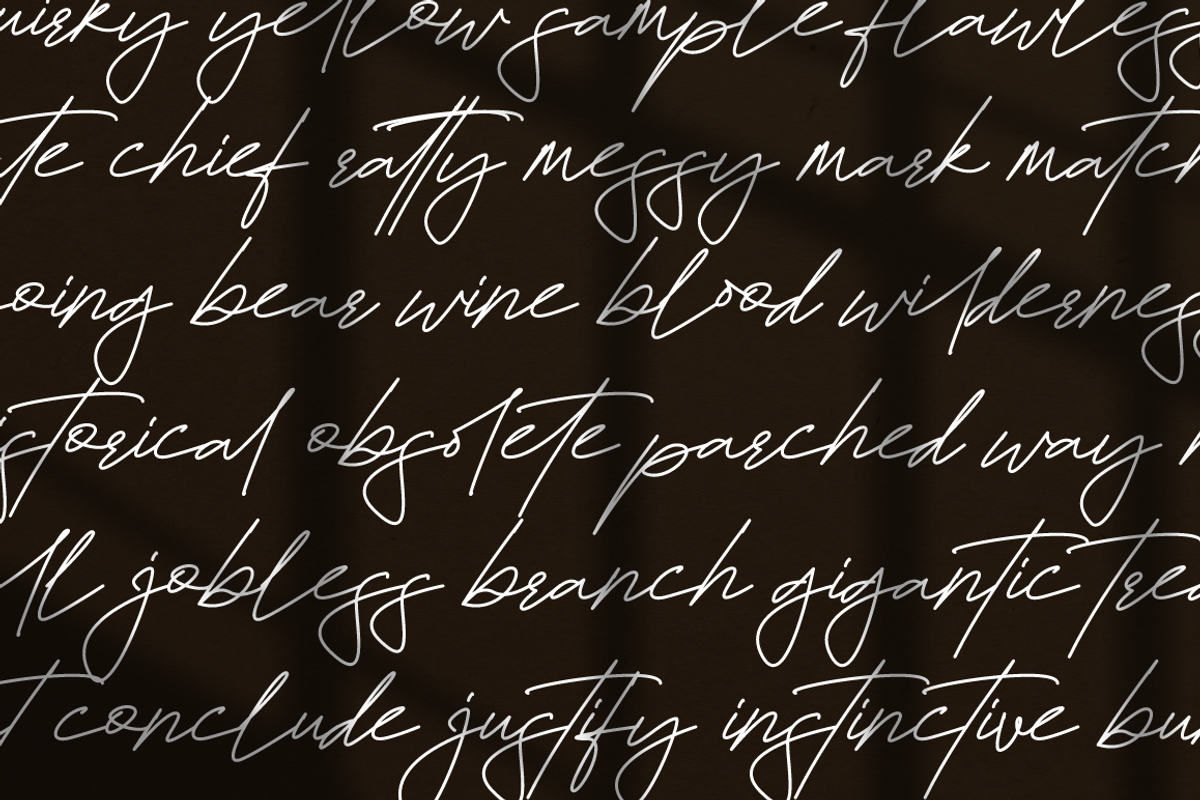 yellow sample flawless
chief ratty messy mark match
bear wine blood wilderness
obsolete parched way
jobless branch gigantic
conclude justify instinctive